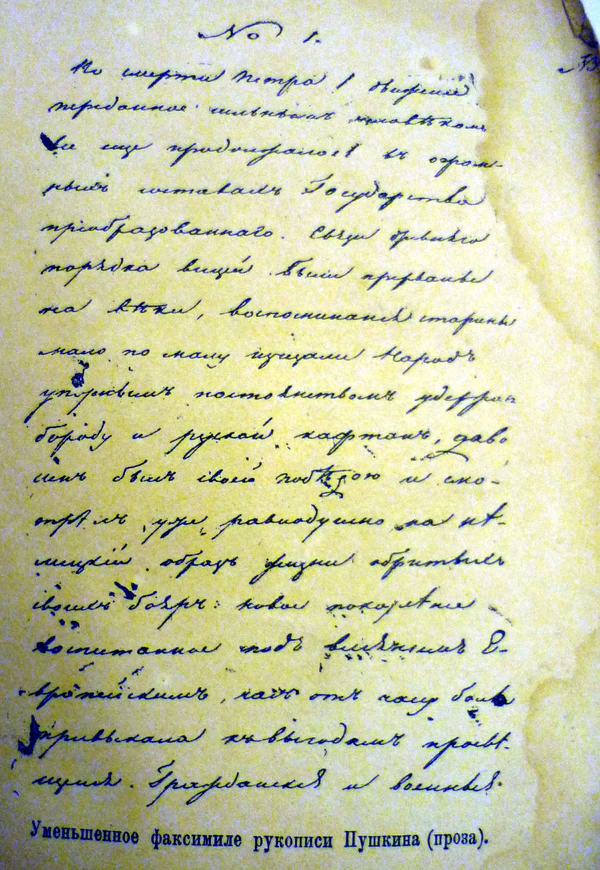 № 1.
По смерти Петра I движение
переданное сильнымъ человѣкомъ
все еще продолжалось въ огром-
ныхъ составахъ Государства
преобразованнаго. Связи древняго
порядка вещей были прерваны
на вѣки, воспоминанія старины
мало по малу изчезали Народъ
упорнымъ постоянствомъ удержавъ
бороду и руской кафтанъ, дово
ленъ былъ своей побѣдою и смо-
трѣлъ уже равнодушно на нѣ-
мецкій образъ жизни обритыхъ
своихъ бояръ: новое поколѣніе
воспитанное подъ вліяніемъ Е-
вропейскимъ, часъ отъ часу болѣе
привыкало къ выгодамъ просвѣ-
щенія. Гражданскія и военные
Уменьшенное факсимиле рукописи Пушкина (проза).